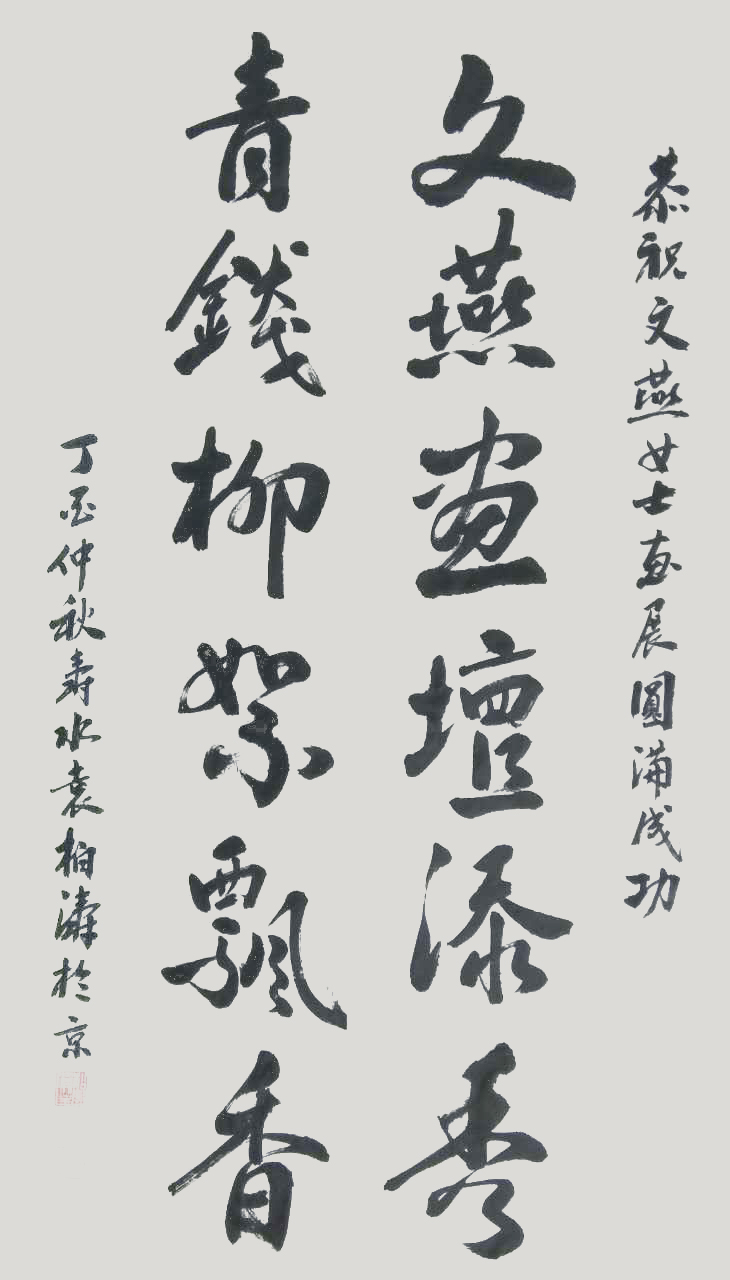 恭祝文燕女士画展圓滿成功
文燕画壇添秀
青錢柳絮飄香
丁酉仲秋壽水袁柏濤於京